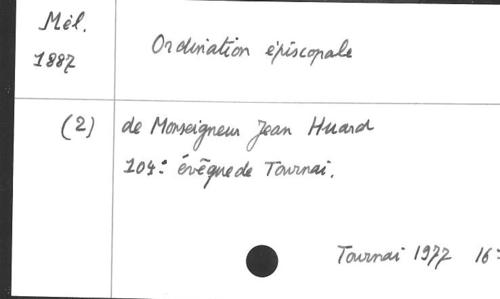 Mél.
1887
Ordination épiscopale
(2)
de Monseigneur Jean Huard
104e évêque de Tournai.
Tournai 1977 16